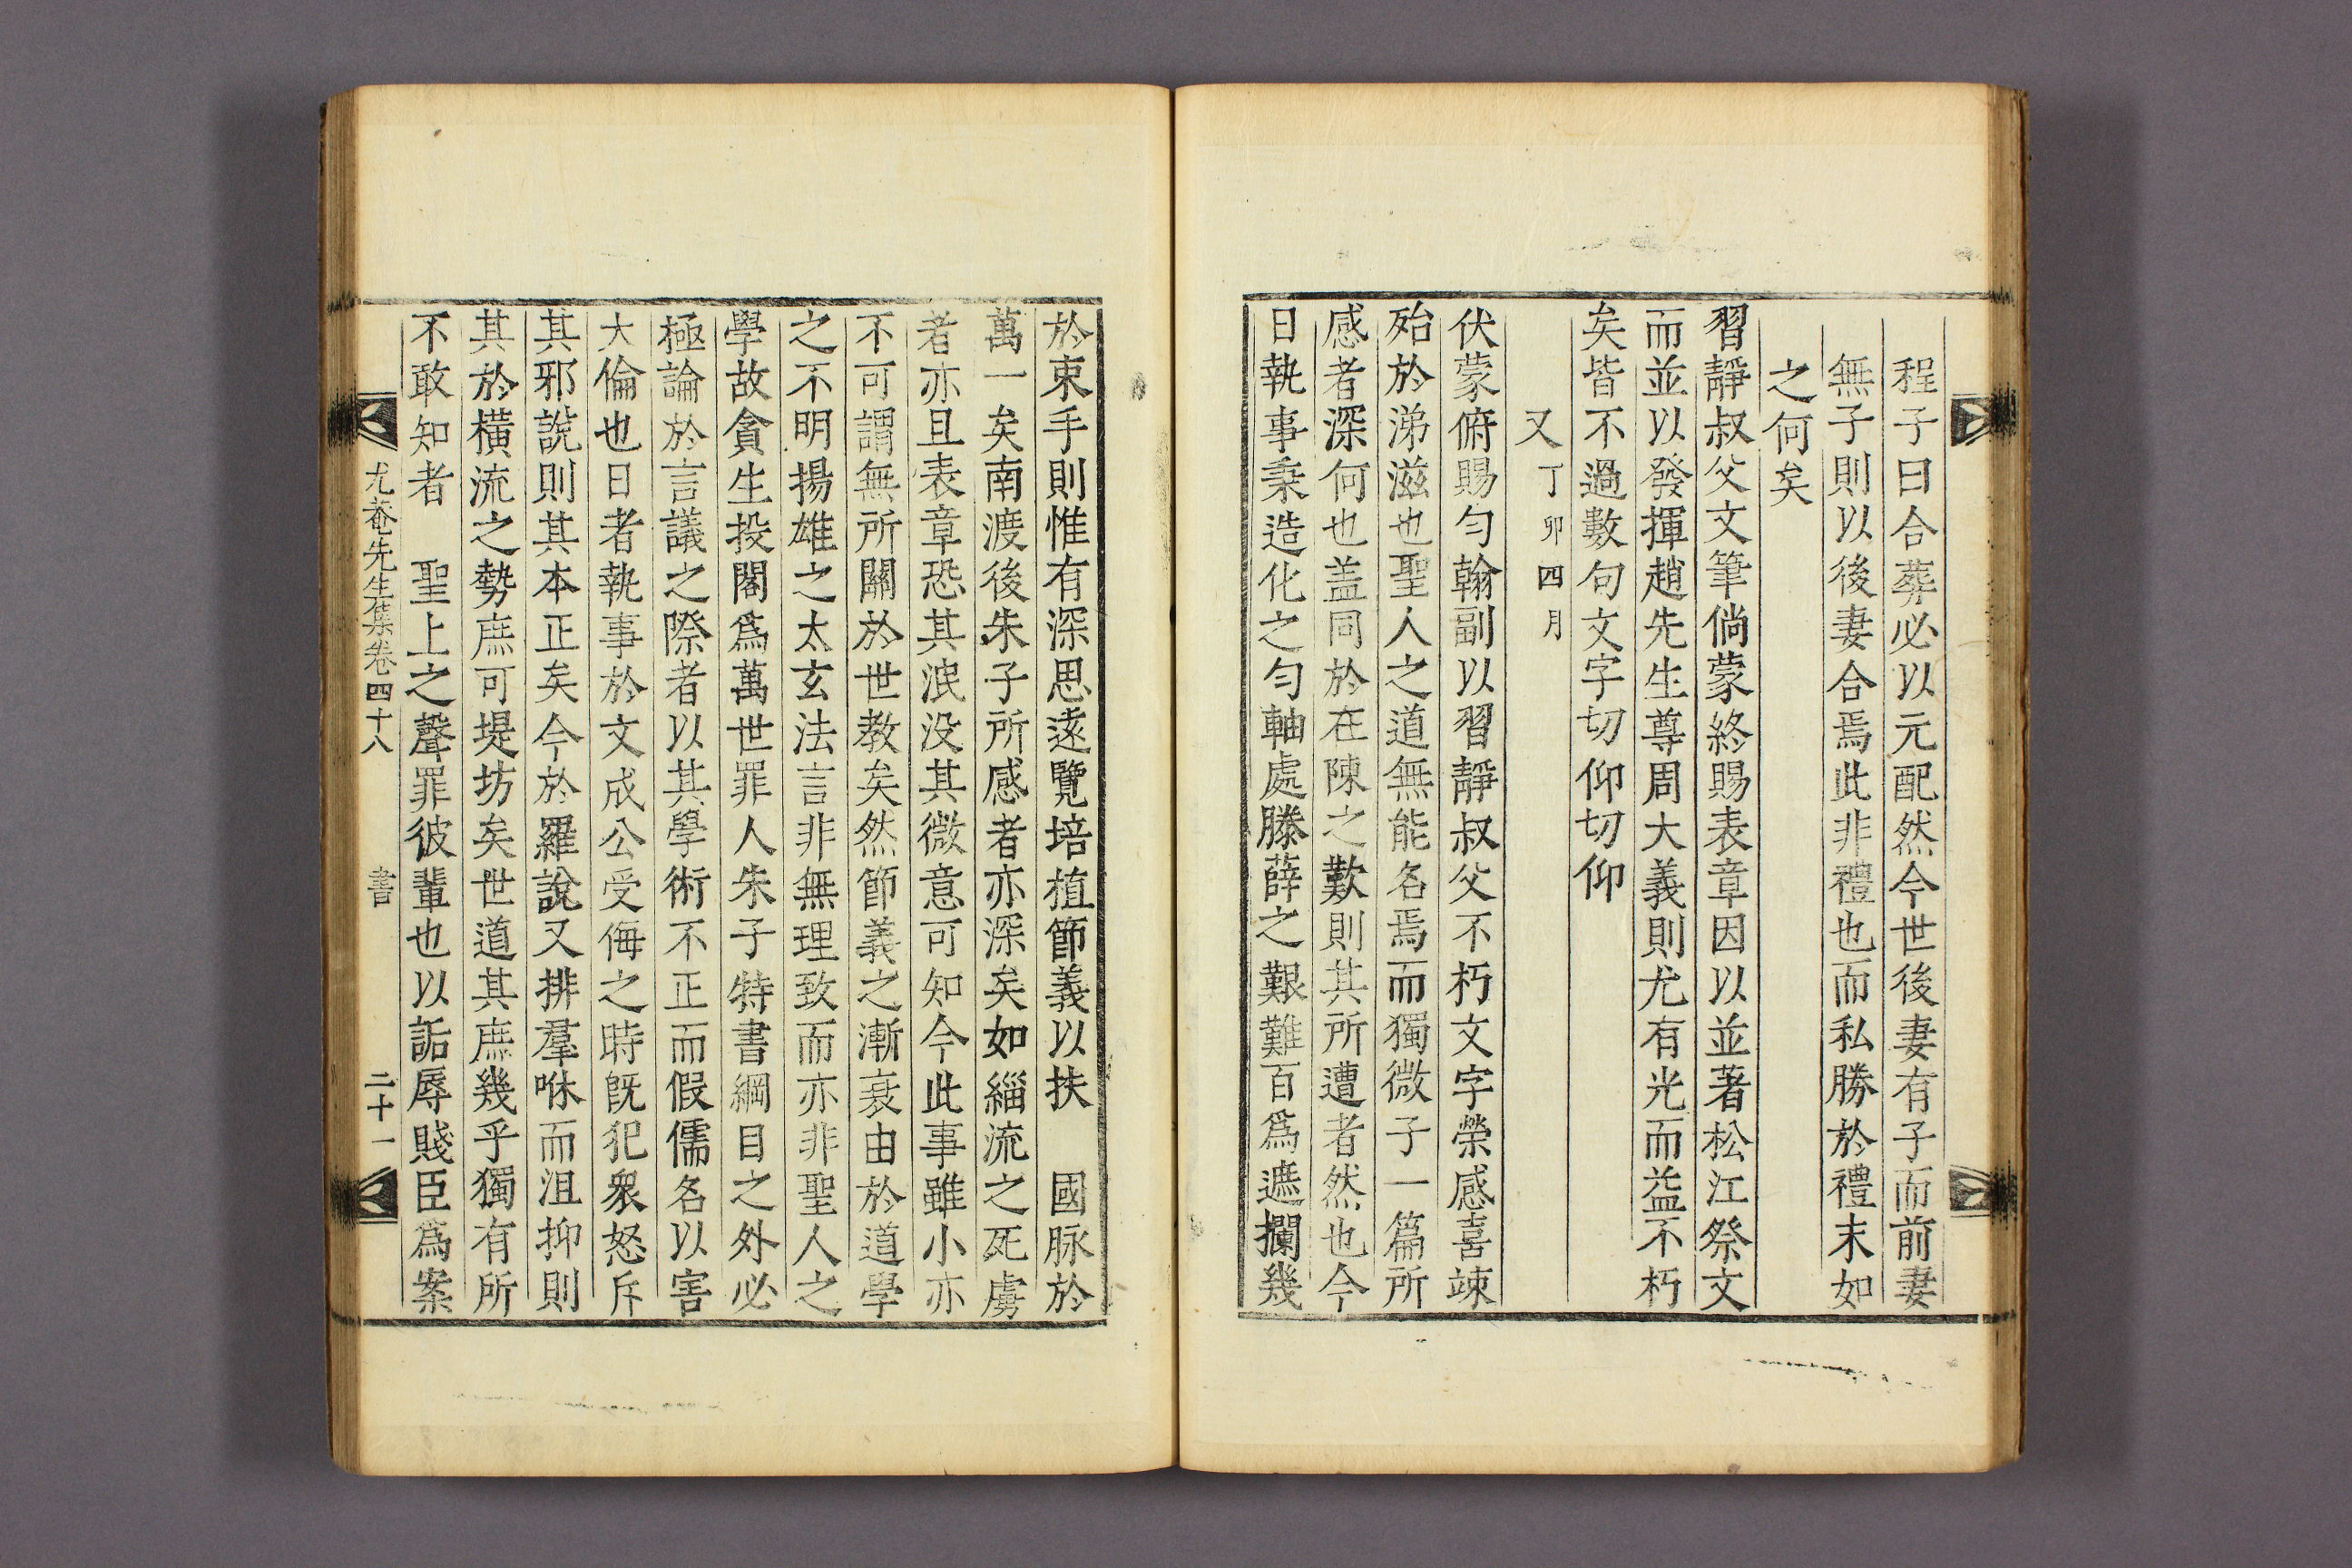 程子曰合葬必以元配然今世後妻有子而前妻
無子則以後妻合焉此非禮也而私勝於禮末如
之何矣
習靜叔父文筆倘蒙終賜表章因以並著松江祭文
而並以發揮趙先生尊周大義則尤有光而益不朽
矣皆不過數句文字切仰切仰
又丁卯四月
伏蒙俯賜勻翰副以習靜叔父不朽文字榮感喜竦
殆於涕滋也聖人之道無能名焉而獨微子一篇所
感者深何也盖同於在陳之歎則其所遭者然也今
日執事秉造化之勻軸處滕薛之艱難百爲遮攔幾
於束手則惟有深思遠覽培植節義以扶 國脉於
萬一矣南渡後朱子所感者亦深矣如緇流之死虜
者亦且表章恐其泯没其微意可知今此事雖小亦
不可謂無所關於世教矣然節義之漸衰由於道學
之不明揚雄之太玄法言非無理致而亦非聖人之
學故貪生投閣爲萬世罪人朱子特書綱目之外必
極論於言議之際者以其學術不正而假儒名以害
大倫也日者執事於文成公受侮之時旣犯衆怒斥
其邪說則其本正矣今於羅說又排羣咻而沮抑則
其於橫流之勢庶可堤坊矣世道其庶幾乎獨有所
不敢知者 聖上之聲罪彼輩也以詬辱賤臣爲案
尤菴先生集卷四十八 書 二十一